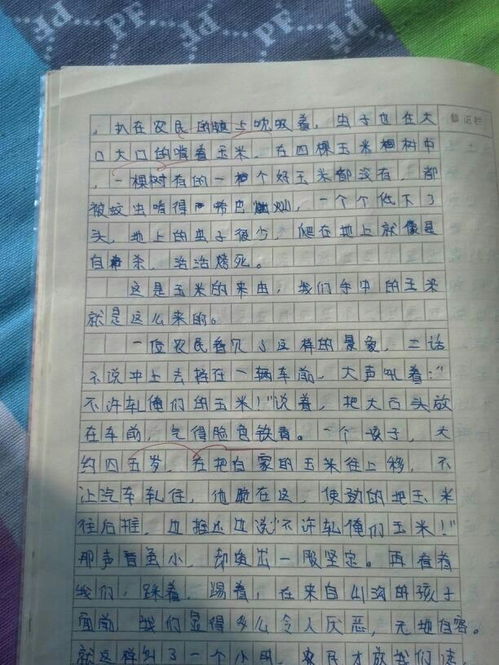 PF PF
勘误栏
，趴在农民的腿上吮吸着，虫子也在大
口大口的啃着玉米，在四棵玉米树中
，一棵树有的一个好玉头都没有，都
被蚊虫啃得稀巴烂，一个个低下了
头，地上的虫子很少，爬在地上就像是
自杀，活活烤死。
这是玉米的来由，我们手中的玉米
就是这么来的。
一位农民看见了这样的景象，二话
不说冲上去挡在一辆车前，大声吼着："
不许轧俺们的玉米！"说着，把大石头放
在车前，气得脸色铁青。一个孩子，大
约四五岁，在把自家的玉米往上移，不
让汽车轧住，他蹲在这，使劲的把玉米
往后推，边推还边说"不许轧俺们玉米！"
那声音虽小，却透出一股坚定。再看看
我们，踩着，踢着，在来自山沟的孩子
面前，我们显得多么令人厌恶，无地自容。
就这样叫了一个小时，农民才放我们走，